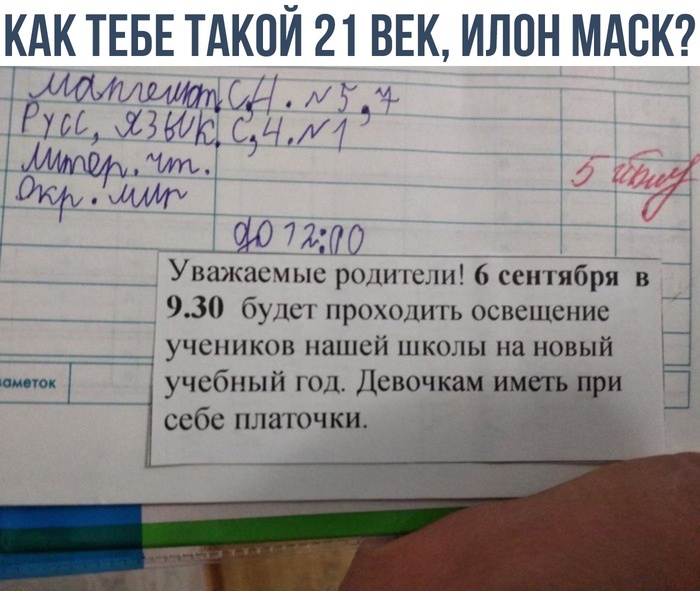 КАК ТЕБЕ ТАКОЙ 21 ВЕК, ИЛОН МАСК?
математ. с,4. №5,7
Русс, язык. с,4.№1
Литер.чт.
Окр.мир
5
до 12:00
Уважаемые родители! 6 сентября в
9.30 будет проходить освещение
учеников нашей школы на новый
учебный год. Девочкам иметь при
себе платочки.
аметок